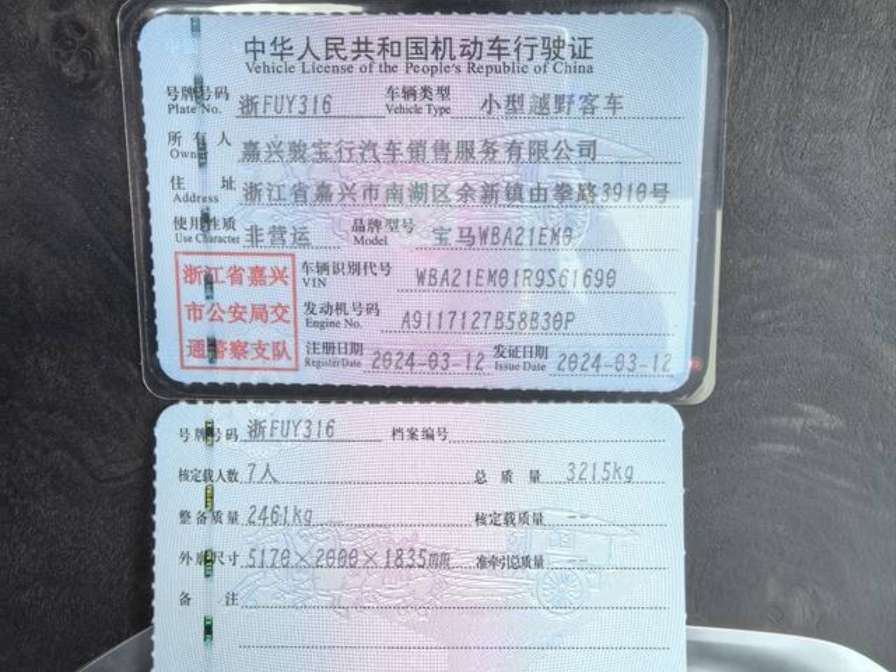 中华人民共和国机动车行驶证
Vehicle License of the People's Republic of China
号牌号码 浙FUY316 车辆类型 小型越野客车
Plate No. Vehicle Type
所有人 嘉兴骏宝行汽车销售服务有限公司
Owner
住址 浙江省嘉兴市南湖区余新镇由拳路3910号
Address
使用性质 非营运 品牌型号 宝马WBA21EM0
Use Character Model
浙江省嘉兴
市公安局交
通警察支队
车辆识别代号 WBA21EM01R9S61690
VIN
发动机号码 A9117127B58B30P
Engine No.
注册日期 2024-03-12 发证日期 2024-03-12
Register Date Issue Date
号牌号码 浙FUY316 档案编号
核定载人数 7人 总质量 3215kg
整备质量 2461kg 核定载质量 --
外廓尺寸 5170×2000×1835mm 准牵引总质量 --
备注